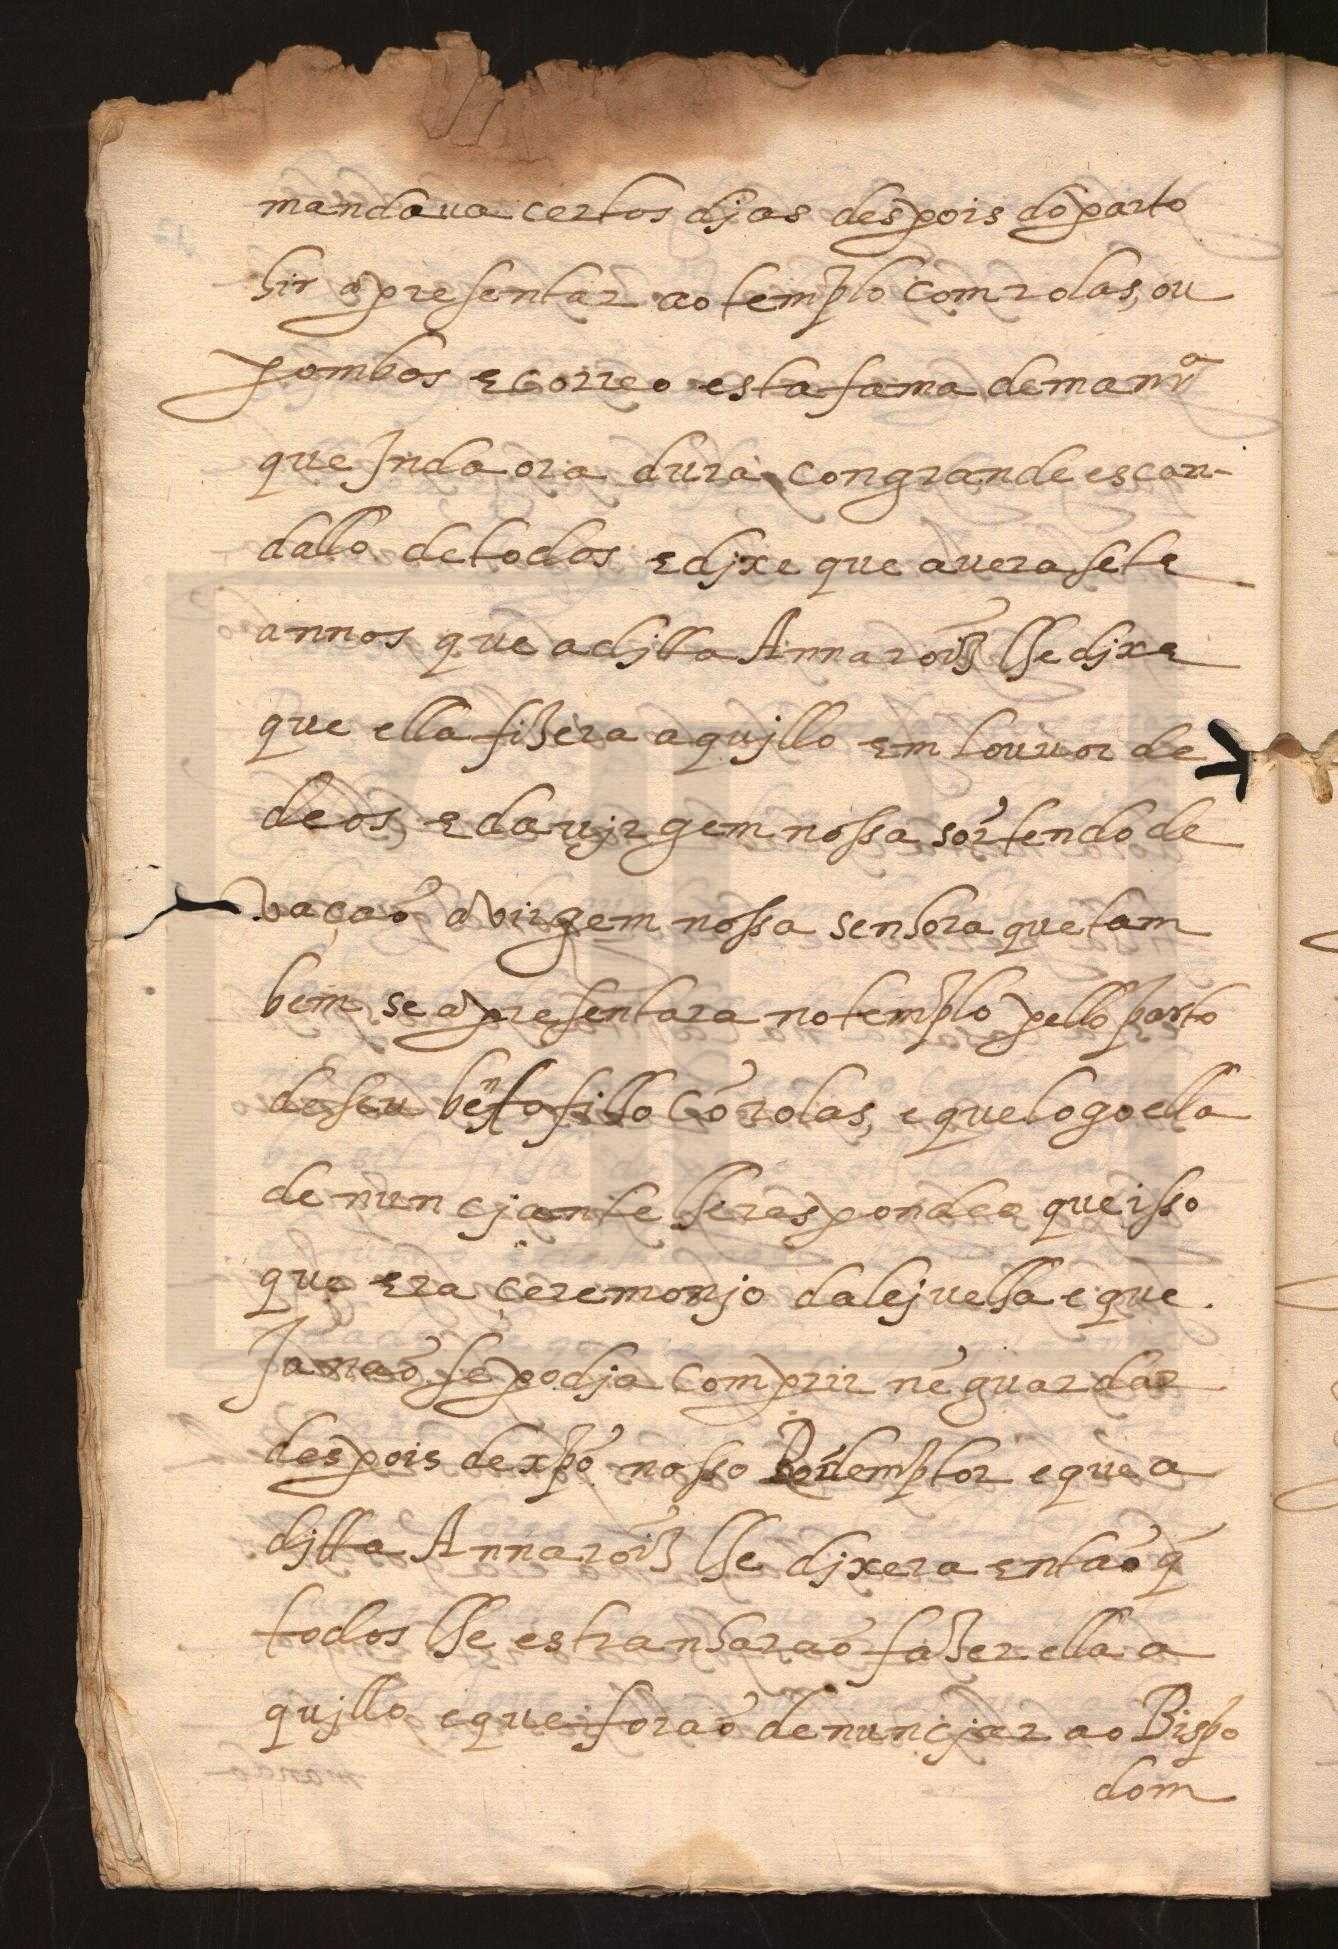 mandaua certos djas despois do parto
hir apresentar ao templo com rolas, ou
pombos e correo esta fama de manrª
que Inda ora dura con grande escan-
dallo de todos e djxe que auera sete
annos que a ditta Anna roiz lhe djxe
que ella fizera aquillo em louuor de
deos, e da virgem nossa sõr tendo de
vaçaõ a virgem nossa senhora que tam
bem se apresentara no templo pello parto
de seu filho cõ rolas, e que logo ella
denuncjante lhe respondeo que isso
que era ceremonjo da lej velha e que
Ja naõ se podja comprir nẽ guardar
despois de xpõ nosso Redemptor e que a
ditta Anna roiz lhe djxera entaõ q̃
todos lhe estranharaõ fazer ella a
quillo e que foraõ denuncjar ao Bispo
dom